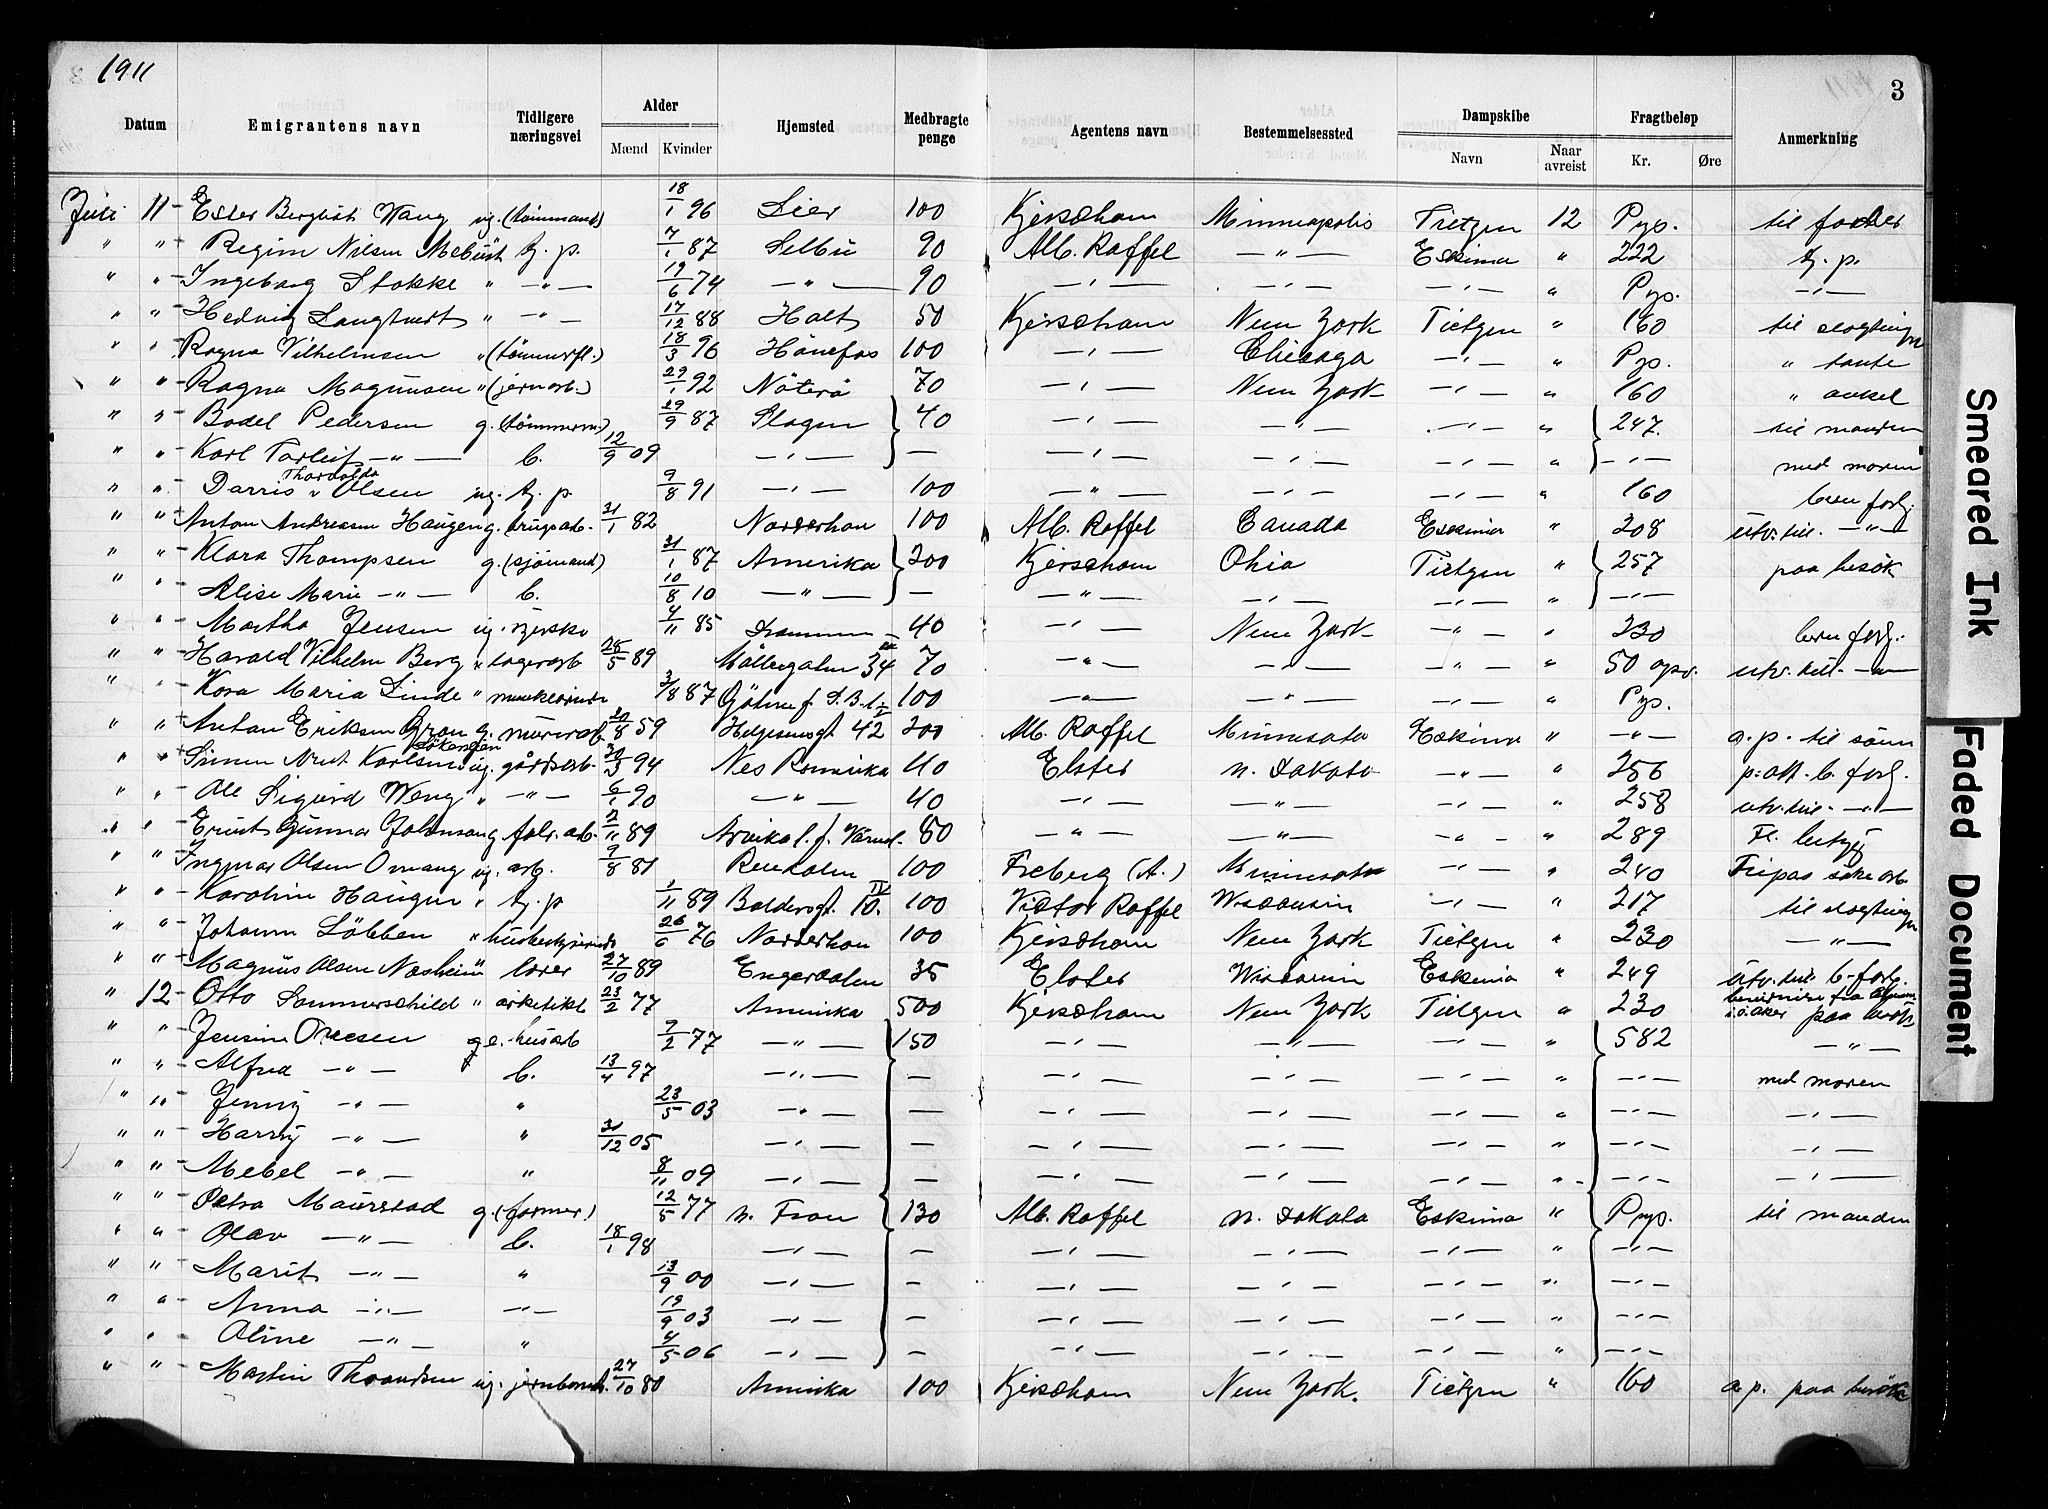 1911
3
Datum Emigrantens navn Tidligere næringsvei Alder Mænd Kvinder Hjemsted Medbragte penge Agentens navn Bestemmelsessted Dampskibe Navn Naar avreist Fragtbeløp Kr. Øre Anmerkning
Juli 11 Ester Bergliot Wang ug. (tømmand) 18/1 96 Lier 100 Kjerschow Minneapolis Tietgen 12 Pyp. til fader
" " Regine Nilsen Mebust tj. p. 7/1 87 Selbu 90 Alb. Raffel — " — Eskimo " 222 tj. p.
" " Ingeborg Stokke " — " — 19/6 74 — " — 90 — " — — " — — " — " Pyp. — " —
" " Hedvig Langtvert " — " — 17/12 88 Holt 50 Kjerschow New York Tietgen " 160 til slegtinge
" " Ragna Vilhelmsen " (tømmerfl.) 18/3 96 Hönefos 100 — " — Chicago — " — " Pyp. " tante
" " Ragna Magnussen " (jernarb.) 29/1 92 Nöterö 70 — " — New York — " — " 160 " onkel
" " Bodel Pedersen g. (tömmerm.) 29/9 87 Slagen 40 — " — — " — — " — " 247. til manden
" " Karl Torleif — " — b. 12/9 09 — " — — — " — — " — — " — " — " — med moren
" " Dorris Thorvalda Olsen ug. tj. p. 9/8 91 — " — 100 — " — — " — — " — " 160 bedre forh.
" " Anton Andreasen Haugen g. brugsarb. 31/1 82 Norderhov 100 Alb. Raffel Canada Eskimo " 208 utv. til. — " —
" " Klara Thompsen g. (sjömand) 31/1 87 Amerika 200 Kjerschow Ohio Tietgen " 257 paa besök
" " Alise Marie — " — b. 10/8 10 — " — — — " — — " — — " — " — " —
" " Martha Jensen ug. 4/11 85 Drammen 40 — " — New York — " — " 230 bedre forh.
" " Harald Vilhelm Berg " lagerarb 28/5 89 Möllergaten 34 70 — " — — " — — " — " 50 utv. til. — " —
" " Kora Maria Linde " 3/8 87 100 — " — — " — — " — " Pyp.
" " Anton Eriksen g. murerarb. 8 59 Helgesensgt 42 200 Alb. Raffel Minnesota Eskimo " — " — a. p. til sönn
" " Simen Karlsen ug. gårdsarb. 30/3 94 Nes Romerike 40 Elster N. Dakota — " — " 256 b. forh.
" " Ole Sigurd Weng " — " — 6/1 90 — " — 40 — " — — " — — " — " 258 utv. til. — " —
" " Ernst Gunnar Johansen g. fabr. arb. 2/11 89 Arvika l. f. Värml. 80 — " — — " — — " — " 289
" " Ingvar Olsen Omang ug. arb. 9/8 81 Rendalen 100 Freberg (A.) Minnesota — " — " 240 Fripas söke arb
" " Karoline Haugen " tj. p 1/11 89 Baldersgt. 10. IV 100 Victor Raffel Wisconsin — " — " 217 til slegtinge
" " Johanne Löbben " husbestyrerinde 26/6 76 Norderhov 100 Kjerschow New York Tietgen " 230 — " —
" " Magnus Olsen Næsheim " lærer 27/10 89 Engerdalen 35 Elster Wisconsin Eskimo " 249 utv. til b. forh.
" 12 Otto Sommerschild " arkitekt 23/2 77 Amerika 500 Kjerschow New York Tietgen " 230 paa besök
" " Jensine Oresen ge. husarb 7/2 77 — " — 150 — " — — " — — " — " 582 — " —
" " Alfred — " — b. 13/4 97 — " — — — " — — " — — " — " — " — med moren
" " Jenny — " — " 23/5 03 — " — — — " — — " — — " — " — " — — " —
" " Harry — " — " 31/12 05 — " — — — " — — " — — " — " — " — — " —
" " Mebel — " — " 8/11 09 — " — — — " — — " — — " — " — " — — " —
" " Petra Maurstad g. (farmer) 12/5 77 N. Fron 130 Alb. Raffel N. Dakota Eskimo " Pyp. til manden
" " Olav — " — b. 18/1 98 — " — — — " — — " — — " — " — " —
" " Marit — " — " 13/9 00 — " — — — " — — " — — " — " — " —
" " Anna — " — — " — 19/9 03 — " — — — " — — " — — " — " — " —
" " Oline — " — " 4/5 06 — " — — — " — — " — — " — " — " —
" " Martin Thrandsen ug. jernbanearb. 27/10 80 Amerika 100 Kjerschow New York. Tietgen " 160 a. p. paa besök
Smeared Ink
Faded Document